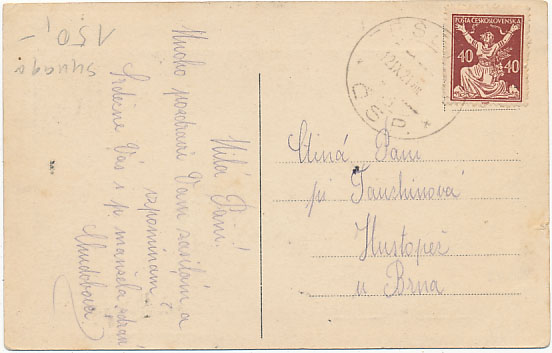 150,-
synagó
Milá Paní!
Mnoho pozdravů Vám zasílám a
vzpomínám.
Srdečně Vás i p. manžela zdraví
Chudobová
POŠTA ČESKOSLOVENSKÁ
40 40
Č.S.P.
Ctiná Paní
pí
Hustopeč
u Brna